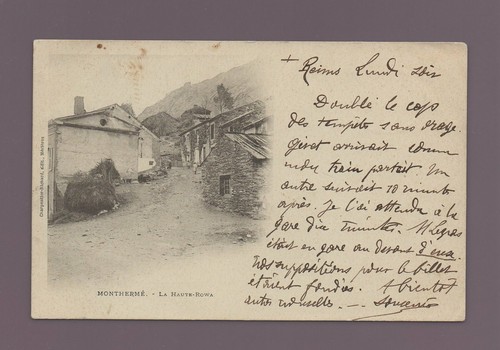 MONTHERMÉ. - LA HAUTE-ROWA
+ Reims Lundi soir
Doublé le cap
des tempêtes sans orage.
Givet arrivait comme
mon train partait. Un
autre suivait 10 minutes
après. Je l'ai attendu à la
gare dix minutes. M Legros
était en gare au devant d'eux.
Nos suppositions pour le billet
étaient fondées. A bientôt
autres nouvelles. --